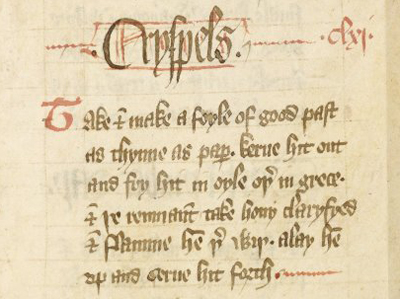 Cryspels. .clxi.
Take & make a foyle of good past
as thynne as pap. kerue hit out
and fry hit in oyle oþ in grece.
& þe remnant take hony claryfyed
& flamme hē þ wiþ. alay hē
vp and serue hit forth.